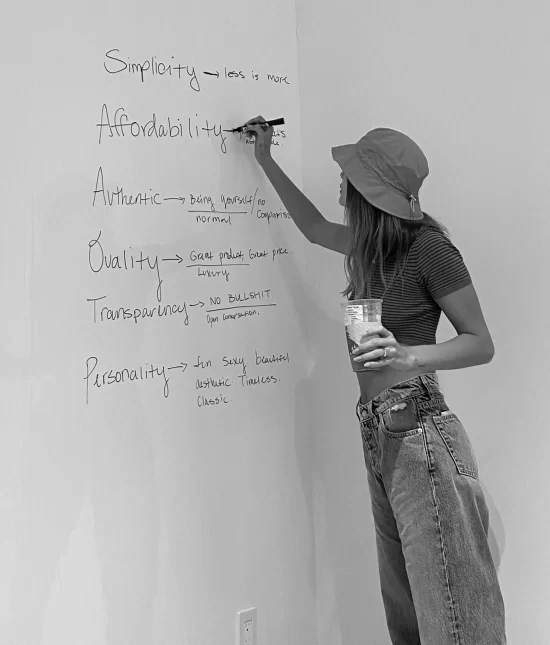 Simplicity → less is more
Affordability →
Authentic → Being yourself/no
normal Comparison
Quality → Great product, Great price
Luxury
Transparency → NO BULLSHIT
Open Conversation.
Personality → fun sexy beautiful
aesthetic Timeless.
Classic.